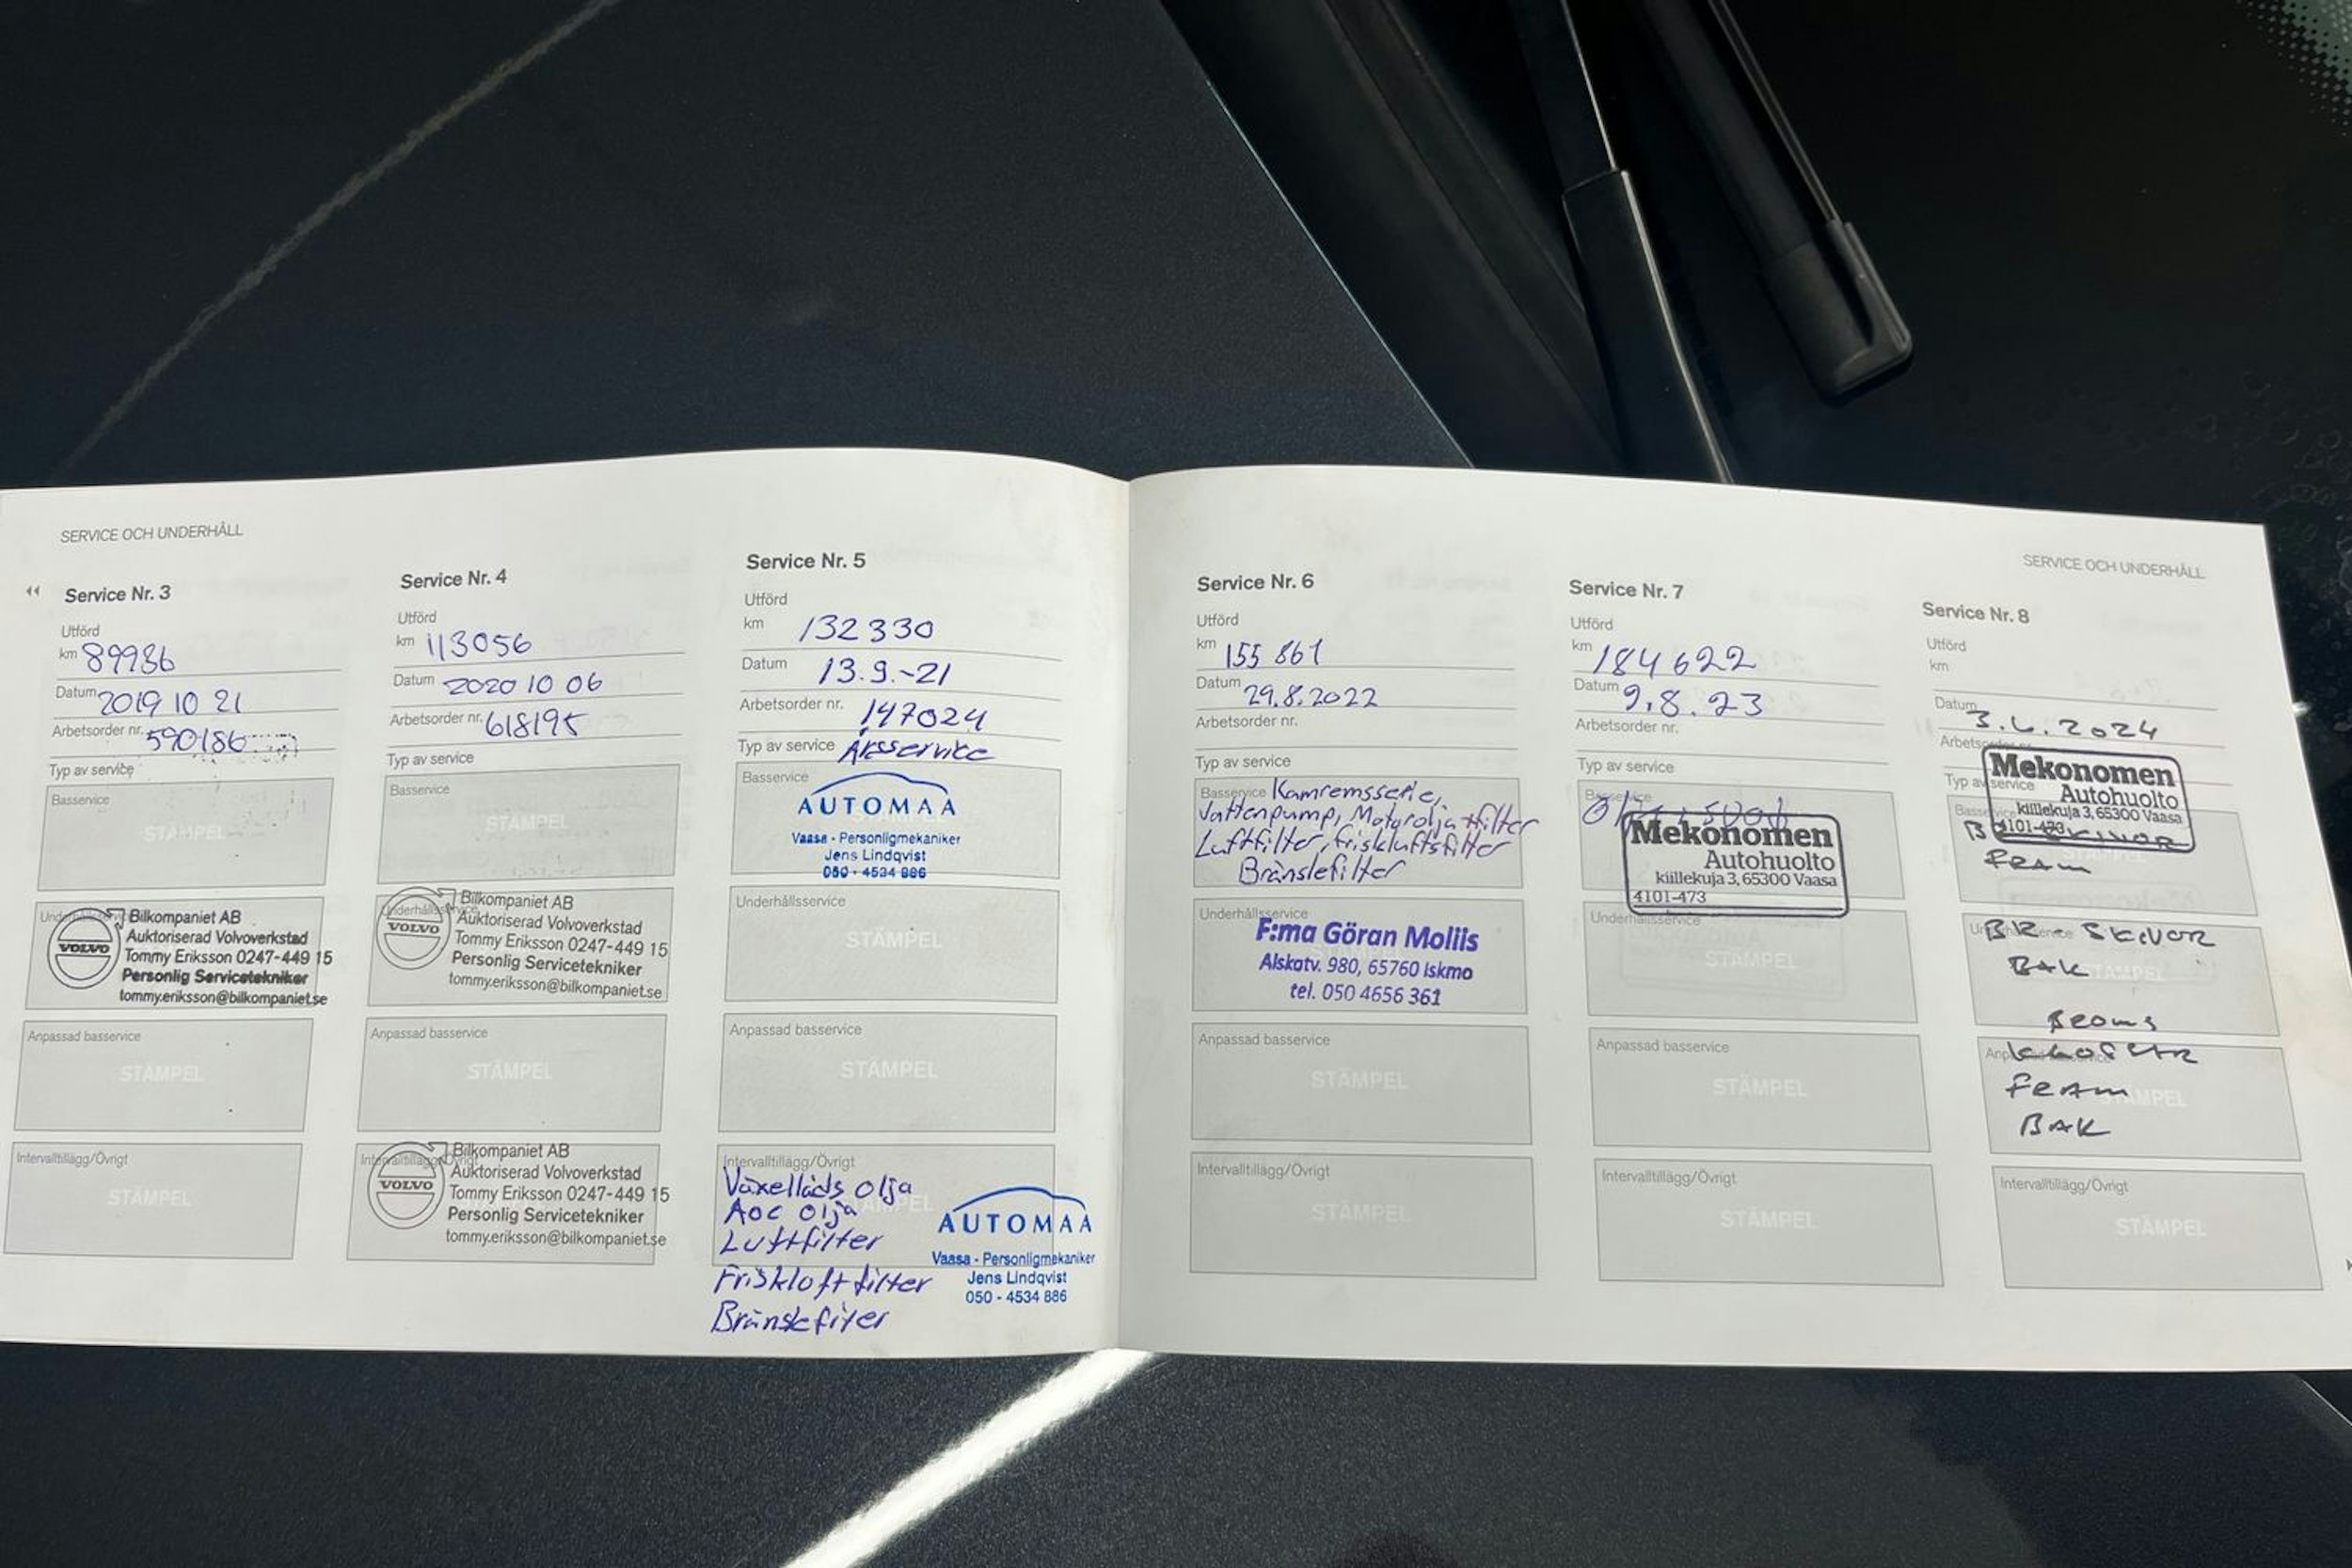 SERVICE OCH UNDERHÅLL
Service Nr. 3
Utförd
km 89936
Datum 2019 10 21
Arbetsorder nr. 590186
Typ av service
Basservice
STÄMPEL
Underhållsservice
VOLVO
Bilkompaniet AB
Auktoriserad Volvoverkstad
Tommy Eriksson 0247-449 15
Personlig Servicetekniker
tommy.eriksson@bilkompaniet.se
Anpassad basservice
STÄMPEL
Intervalltillägg/Övrigt
STÄMPEL
Service Nr. 4
Utförd
km 113056
Datum 2020 10 06
Arbetsorder nr. 618195
Typ av service
Basservice
STÄMPEL
Underhållsservice
VOLVO
Bilkompaniet AB
Auktoriserad Volvoverkstad
Tommy Eriksson 0247-449 15
Personlig Servicetekniker
tommy.eriksson@bilkompaniet.se
Anpassad basservice
STÄMPEL
Intervalltillägg/Övrigt
VOLVO
Bilkompaniet AB
Auktoriserad Volvoverkstad
Tommy Eriksson 0247-449 15
Personlig Servicetekniker
tommy.eriksson@bilkompaniet.se
Service Nr. 5
Utförd
km 132 330
Datum 13.9.-21
Arbetsorder nr. 147024
Typ av service Årsservice
Basservice
AUTOMAA
Vaasa - Personligmekaniker
Jens Lindqvist
050 - 4534 886
Underhållsservice
STÄMPEL
Anpassad basservice
STÄMPEL
Intervalltillägg/Övrigt
Växellåds olja
AOC olja
Luftfilter
Friskluftfilter
Bränslefilter
AUTOMAA
Vaasa - Personligmekaniker
Jens Lindqvist
050 - 4534 886
SERVICE OCH UNDERHÅLL
Service Nr. 6
Utförd
km 155 861
Datum 29.8.2022
Arbetsorder nr.
Typ av service
Basservice Kamremsserie,
Vattenpump, Motorolja+filter
Luftfilter, friskluftsfilter
Bränslefilter
Underhållsservice
F:ma Göran Moliis
Alskatv. 980, 65760 Iskmo
tel. 050 4656 361
Anpassad basservice
STÄMPEL
Intervalltillägg/Övrigt
STÄMPEL
Service Nr. 7
Utförd
km 184 622
Datum 9.8.23
Arbetsorder nr.
Typ av service
Basservice
Mekonomen
Autohuolto
kiillekuja 3, 65300 Vaasa
4101-473
Underhållsservice
STÄMPEL
Anpassad basservice
STÄMPEL
Intervalltillägg/Övrigt
STÄMPEL
Service Nr. 8
Utförd
km
Datum 3.6.2024
Arbetsorder nr.
Typ av service
Mekonomen
Autohuolto
kiillekuja 3, 65300 Vaasa
4101-473
Basservice
FRAM
STÄMPEL
Underhållsservice
BR-SKIVOR
BAK
STÄMPEL
BROMS
Anpassad basservice
KLOSSAR
FRAM
STÄMPEL
BAK
Intervalltillägg/Övrigt
STÄMPEL